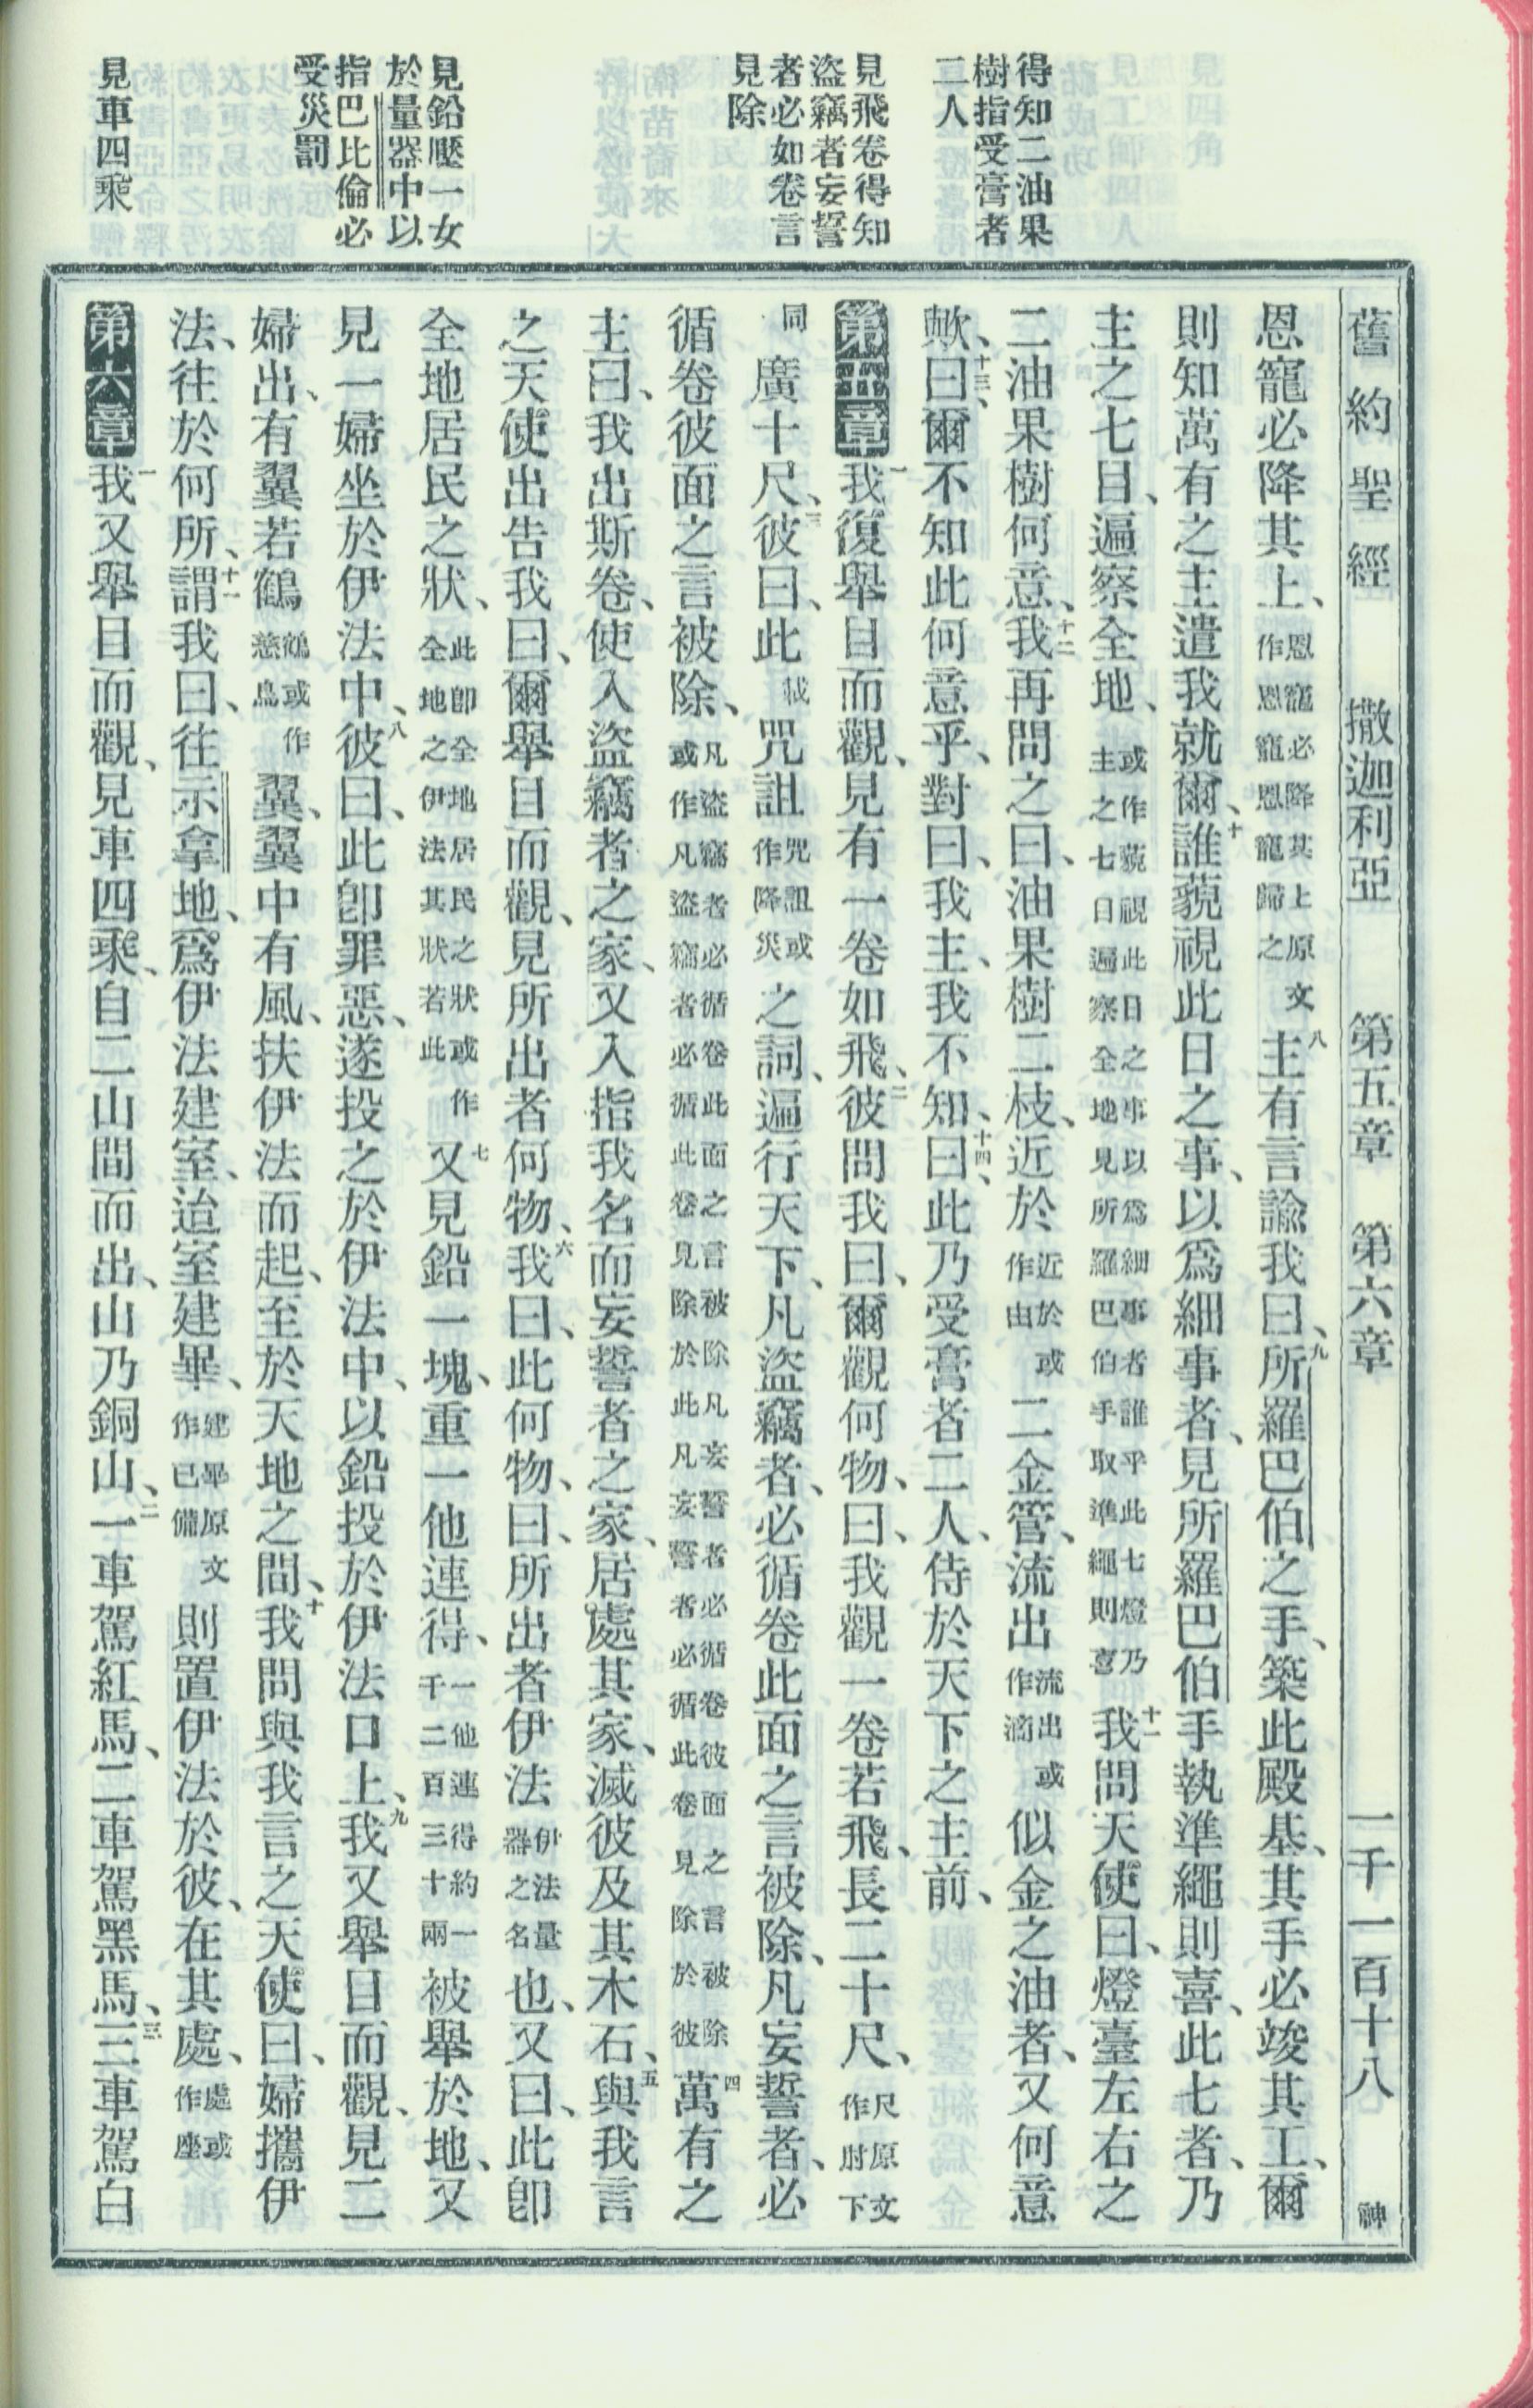 舊約聖經 撒迦利亞 第五章 第六章 一千一百十八 神
得知二油果
樹指受膏者
二人
見飛卷得知
盜竊者妄誓
者必如卷言
見除
見鉛壓一女
於量器中以
指巴比倫必
受災罰
見車四乘
恩寵必降其上、恩寵必降其上原文作恩寵恩寵歸之八主有言諭我曰、九所羅巴伯之手、築此殿基、其手必竣其工、爾
則知萬有之主遣我就爾、十誰藐視此日之事、以爲細事者、見所羅巴伯手執準繩則喜、此七者、乃
主之七目、遍察全地、或作藐視此日之事以爲細事者誰乎此七燈乃主之七目遍察全地見所羅巴伯手取準繩則喜十一我問天使曰、燈臺左右之
二油果樹何意、十二我再問之曰、油果樹二枝、近於近於或作由二金管、流出流出或作滴似金之油者、又何意
歟、十三曰、爾不知此何意乎、對曰、我主、我不知、十四曰、此乃受膏者二人、侍於天下之主前、
第五章一我復舉目而觀、見有一卷如飛、二彼問我曰、爾觀何物、曰、我觀一卷若飛、長二十尺、尺原文作肘下
同廣十尺、三彼曰、此載咒詛咒詛或作降災之詞、遍行天下、凡盜竊者、必循卷此面之言被除、凡妄誓者、必
循卷彼面之言被除、凡盜竊者必循卷此面之言被除凡妄誓者必循卷彼面之言被除或作凡盜竊者必循此卷見除於此凡妄誓者必循此卷見除於彼四萬有之
主曰、我出斯卷、使入盜竊者之家、又入指我名而妄誓者之家、居處其家、滅彼及其木石、五與我言
之天使出告我曰、爾舉目而觀、見所出者何物、六我曰、此何物、曰、所出者伊法伊法量器之名也、又曰、此卽
全地居民之狀、此卽全地居民之狀或作全地之伊法其狀若此七又見鉛一塊、重一他連得、一他連得約一千二百三十兩被舉於地、又
見一婦坐於伊法中、八彼曰、此卽罪惡、遂投之於伊法中、以鉛投於伊法口上、九我又舉目而觀、見二
婦出、有翼若鶴鶴或作慈鳥翼、翼中有風、扶伊法而起、至於天地之間、十我問與我言之天使曰、婦攜伊
法、往於何所、十一謂我曰、往示拿地、爲伊法建室、造室建畢、建畢原文作已備則置伊法於彼、在其處、處或作座
第六章一我又舉目而觀、見車四乘、自二山間而出、山乃銅山、二一車駕紅馬、二車駕黑馬、三三車駕白